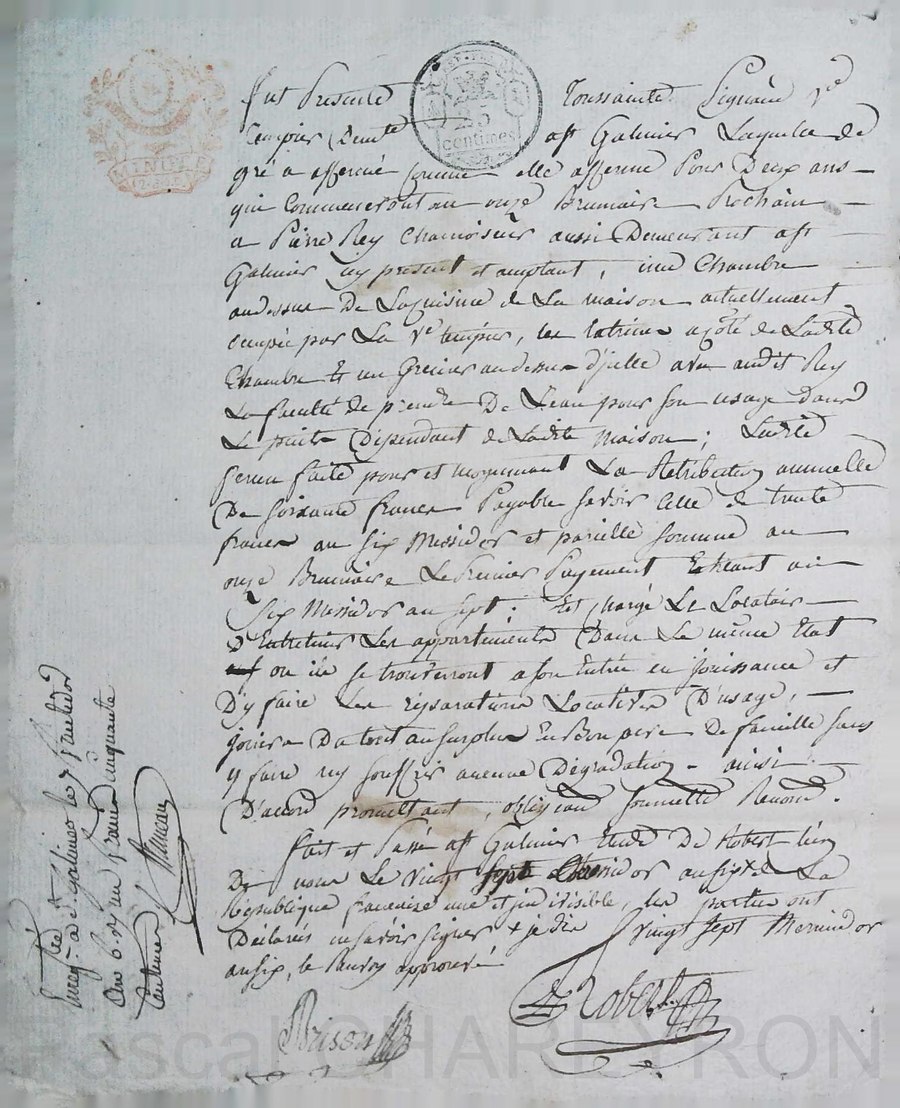 fut Presente Toussainte Pignard Ve
tempier Demte a St Galmier Laquelle de
gré a affermé comme elle afferme Pour Deux ans
qui Commenceront au onze Brumaire Prochain
a Pierre Rey Chamoiseur aussi Demeurant a St
Galmier icy present et acceptant, une Chambre
audessus De La Cuisine de La maison actuellement
occupée par La Ve tempier, les latrines a côté de Ladite
Chambre Et un Grenier audessus d'icelle avec audit Rey
La faculté de prendre De L'eau pour son usage dans
Le puits Dépendant de Ladite maison; Ladite
ferme faite pour et moyennant La Retribution annuelle
De soixante francs Payable savoir Celle de trente
francs au six Messidor et pareille somme au
onze Brumaire Le Premier Payement Echeant au
six Messidor an sept. Est chargé Le Locataire
D'Entretenir Les appartements Dans Le même Etat
ou ils se trouveront a son Entrée en Jouissance et
D'y faire Les réparations Locatives D'usage,
Jouira Du tout au surplus En Bon pere De famille sans
y faire ny souffrir aucune Dégradation - ainsi
D'accord promettant, obligeant soumett Renonc.
Fait et Passé a St Galmier Etude De Robert L'un
De nous Le vingt sept Messidor an six de La
République francaise une et indivisible, les parties ont
Déclarés ne savoir signer & je dis vingt sept Messidor
an six, le approuvé
Robert
Brison
Enregté a St Galmier le 7 Thermidor
an 6. Rx un franc cinquante
centimes
25
centimes
Pascal CHAREYRON